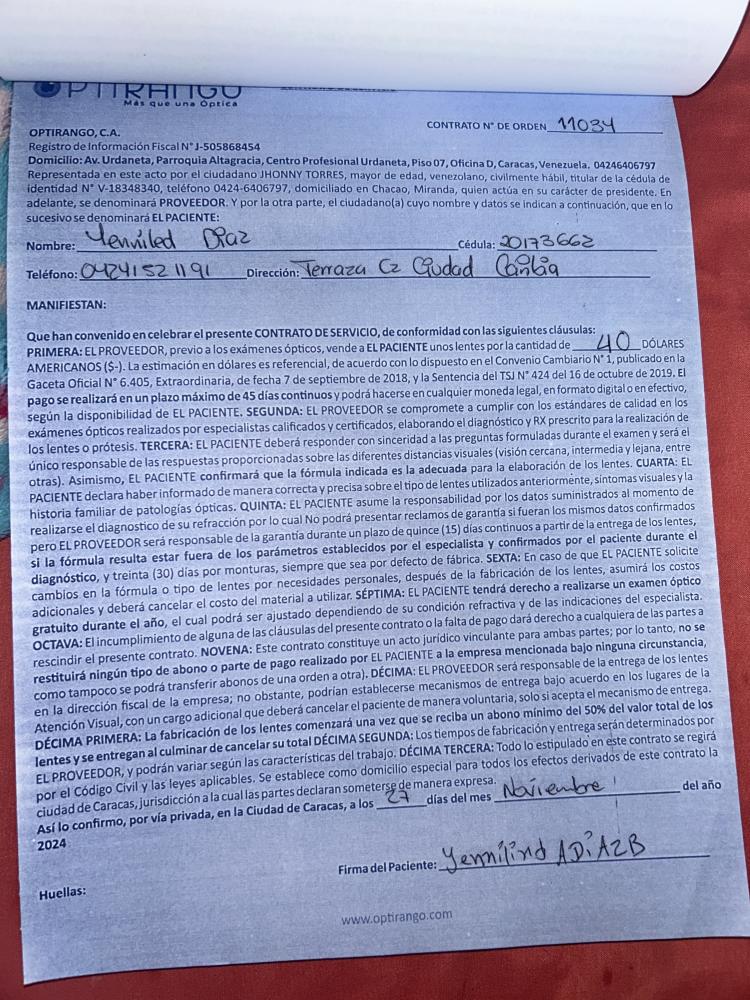 OPTIRANGO
Más que una Óptica
CONTRATO N° DE ORDEN 11034
OPTIRANGO, C.A.
Registro de Información Fiscal N° J-505868454
Domicilio: Av. Urdaneta, Parroquia Altagracia, Centro Profesional Urdaneta, Piso 07, Oficina D, Caracas, Venezuela. 04246406797
Representada en este acto por el ciudadano JHONNY TORRES, mayor de edad, venezolano, civilmente hábil, titular de la cédula de
identidad N° V-18348340, teléfono 0424-6406797, domiciliado en Chacao, Miranda, quien actúa en su carácter de presidente. En
adelante, se denominará PROVEEDOR. Y por la otra parte, el ciudadano(a) cuyo nombre y datos se indican a continuación, que en lo
sucesivo se denominará EL PACIENTE:
Nombre: Yenniled Diaz Cédula: 20173662
Teléfono: 04241521191 Dirección: Terraza C2 Ciudad
MANIFIESTAN:
Que han convenido en celebrar el presente CONTRATO DE SERVICIO, de conformidad con las siguientes cláusulas:
PRIMERA: EL PROVEEDOR, previo a los exámenes ópticos, vende a EL PACIENTE unos lentes por la cantidad de 40 DÓLARES
AMERICANOS ($-). La estimación en dólares es referencial, de acuerdo con lo dispuesto en el Convenio Cambiario N° 1, publicado en la
Gaceta Oficial N° 6.405, Extraordinaria, de fecha 7 de septiembre de 2018, y la Sentencia del TSJ N° 424 del 16 de octubre de 2019. El
pago se realizará en un plazo máximo de 45 días continuos y podrá hacerse en cualquier moneda legal, en formato digital o en efectivo,
según la disponibilidad de EL PACIENTE. SEGUNDA: EL PROVEEDOR se compromete a cumplir con los estándares de calidad en los
exámenes ópticos realizados por especialistas calificados y certificados, elaborando el diagnóstico y RX prescrito para la realización de
los lentes o prótesis. TERCERA: EL PACIENTE deberá responder con sinceridad a las preguntas formuladas durante el examen y será el
único responsable de las respuestas proporcionadas sobre las diferentes distancias visuales (visión cercana, intermedia y lejana, entre
otras). Asimismo, EL PACIENTE confirmará que la fórmula indicada es la adecuada para la elaboración de los lentes. CUARTA: EL
PACIENTE declara haber informado de manera correcta y precisa sobre el tipo de lentes utilizados anteriormente, síntomas visuales y la
historia familiar de patologías ópticas. QUINTA: EL PACIENTE asume la responsabilidad por los datos suministrados al momento de
realizarse el diagnostico de su refracción por lo cual No podrá presentar reclamos de garantía si fueran los mismos datos confirmados
pero EL PROVEEDOR será responsable de la garantía durante un plazo de quince (15) días continuos a partir de la entrega de los lentes,
si la fórmula resulta estar fuera de los parámetros establecidos por el especialista y confirmados por el paciente durante el
diagnóstico, y treinta (30) días por monturas, siempre que sea por defecto de fábrica. SEXTA: En caso de que EL PACIENTE solicite
cambios en la fórmula o tipo de lentes por necesidades personales, después de la fabricación de los lentes, asumirá los costos
adicionales y deberá cancelar el costo del material a utilizar. SÉPTIMA: EL PACIENTE tendrá derecho a realizarse un examen óptico
gratuito durante el año, el cual podrá ser ajustado dependiendo de su condición refractiva y de las indicaciones del especialista.
OCTAVA: El incumplimiento de alguna de las cláusulas del presente contrato o la falta de pago dará derecho a cualquiera de las partes a
rescindir el presente contrato. NOVENA: Este contrato constituye un acto jurídico vinculante para ambas partes; por lo tanto, no se
restituirá ningún tipo de abono o parte de pago realizado por EL PACIENTE a la empresa mencionada bajo ninguna circunstancia,
como tampoco se podrá transferir abonos de una orden a otra). DÉCIMA: EL PROVEEDOR será responsable de la entrega de los lentes
en la dirección fiscal de la empresa; no obstante, podrían establecerse mecanismos de entrega bajo acuerdo en los lugares de la
Atención Visual, con un cargo adicional que deberá cancelar el paciente de manera voluntaria, solo si acepta el mecanismo de entrega.
DÉCIMA PRIMERA: La fabricación de los lentes comenzará una vez que se reciba un abono mínimo del 50% del valor total de los
lentes y se entregan al culminar de cancelar su total DÉCIMA SEGUNDA: Los tiempos de fabricación y entrega serán determinados por
EL PROVEEDOR, y podrán variar según las características del trabajo. DÉCIMA TERCERA: Todo lo estipulado en este contrato se regirá
por el Código Civil y las leyes aplicables. Se establece como domicilio especial para todos los efectos derivados de este contrato la
ciudad de Caracas, jurisdicción a la cual las partes declaran someterse de manera expresa.
Así lo confirmo, por vía privada, en la Ciudad de Caracas, a los 27 días del mes Noviembre del año
2024
Firma del Paciente:
Huellas:
www.optirango.com